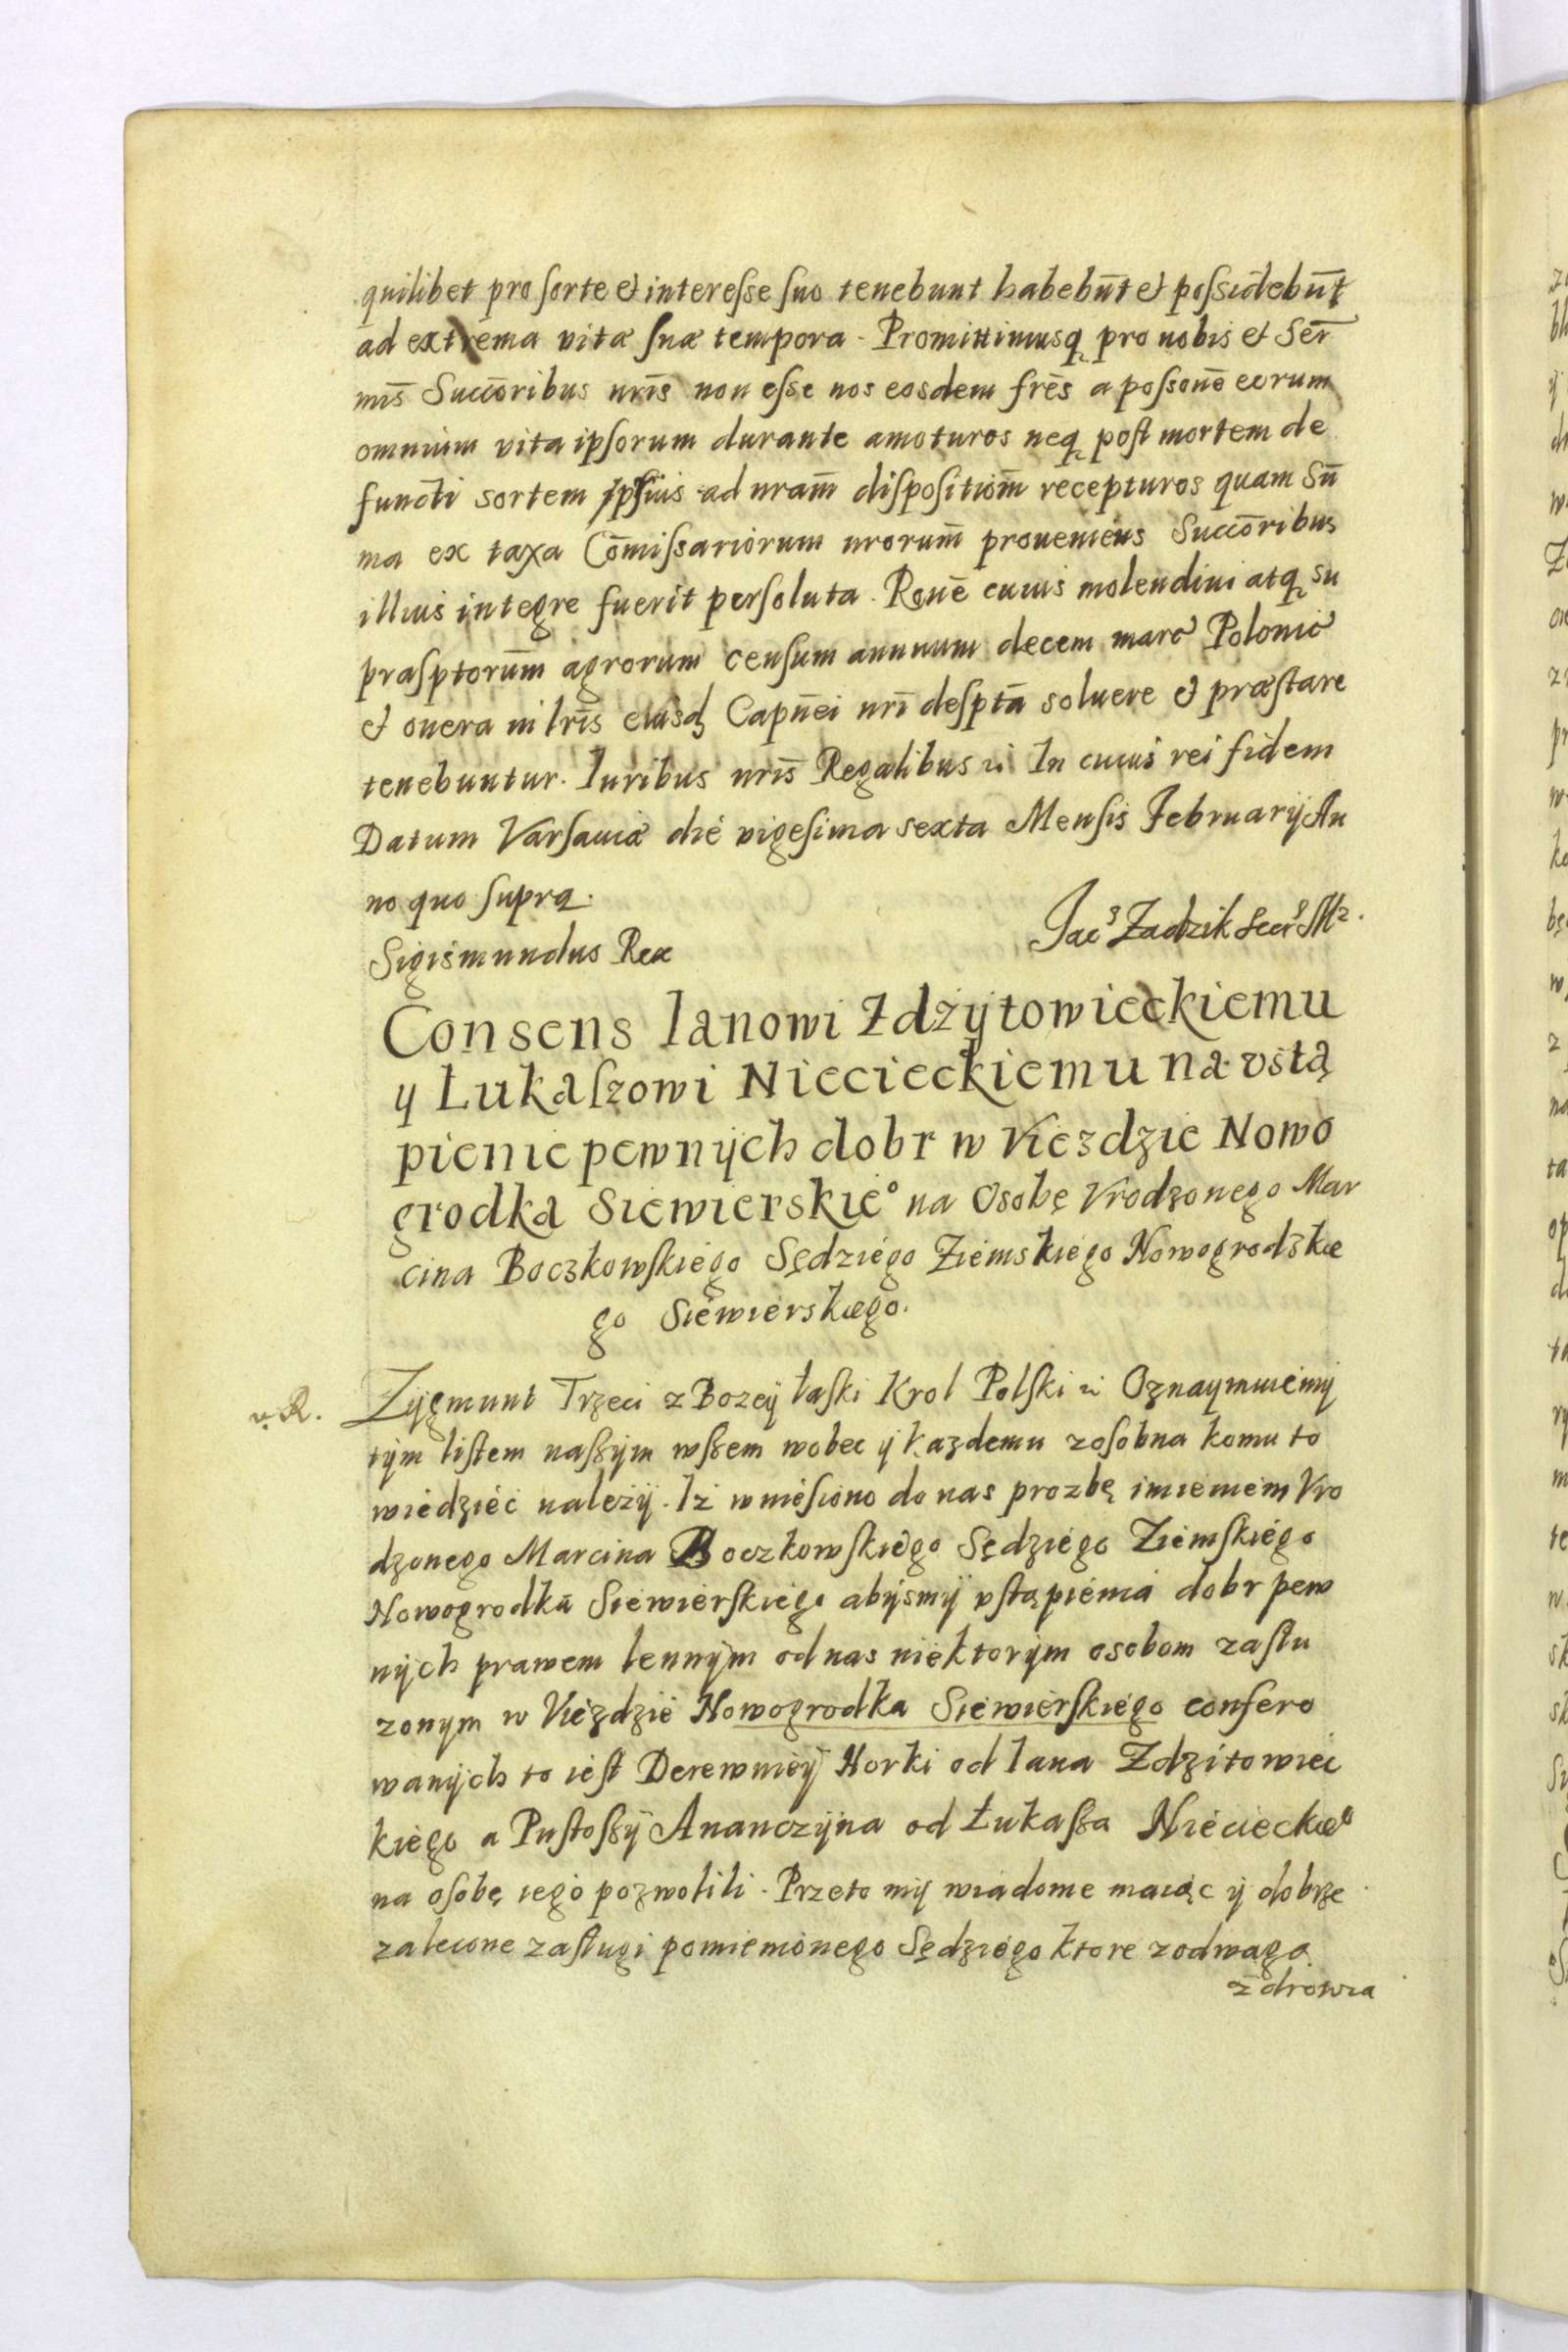 quilibet pro sorte et interesse suo tenebunt habebūt et possidebūt
ad extrema vitæ suæ tempora. Promittimusq pro nobis et Ser
mis̄ Succōribus nrīs non esse nos eosdem frēs a possonē eorum
omnium vita ipsorum durante amoturos neq post mortem de
functi sortem ipsius ad nram̄ dispositiom̄ recepturos quam Sū
ma ex taxa Cōmissariorum nrorum̄ proueniens Succōribus
illius integre fuerit persoluta. Rōnē cuius molendini atq su
prasptorum̄ agrorum censum annuum decem marc Polonic
et onera in lrīs eiusd Capnēi nrī desptā soluere et præstare
tenebuntur. Iuribus nrīs Regalibus ꝛc In cuius rei fidem
Datum Varsauiæ die vigesima sexta Mensis February An
no quo supra.
Jacꝰ Zadzik Secrꝰ Mꝛ.
Sigismundus Rex
Consens Ianowi Zdżÿtowieckiemu
y Łukaszowi Niecieckiemu na vstą
pienie pewnÿch dobr w Vieździe Nowo
grodka Siewierskieº na Osobę Vrodzonego Mar
cina Boczkowskiego Sędziego Ziemskiego Nowogrodzkie
go Siewierskiego.
v. R.
Zygmunt Trzeci z Bozeÿ łaski Krol Polski ꝛc Oznaymuiemÿ
tÿm listem naszÿm wszem wobec ÿ kazdemu zosobna komu to
wiedzieć należÿ. Iż wniesiono do nas prozbę imieniem Vro
dzonego Marcina Boczkowskiego Sędziego Ziemskiego
Nowogrodka Siewierskiego abÿsmÿ vstąpienia dobr pew
nÿch prawem lennÿm od nas niektorÿm osobom zasłu
zonym w Vieździe Nowogrodka Siewierskiego confero
wanÿch to iest Derewnieÿ Horki od Iana Zdzitowiec
kiego a Pustoszÿ Ananczÿna od Łukasza Nieciecki​eº
na osobę iego pozwolili. Przeto mÿ wiadome maiąc ÿ dobrze
zalecone zasługi pomienionego Sędziego ktore z odwagą
zdrowia